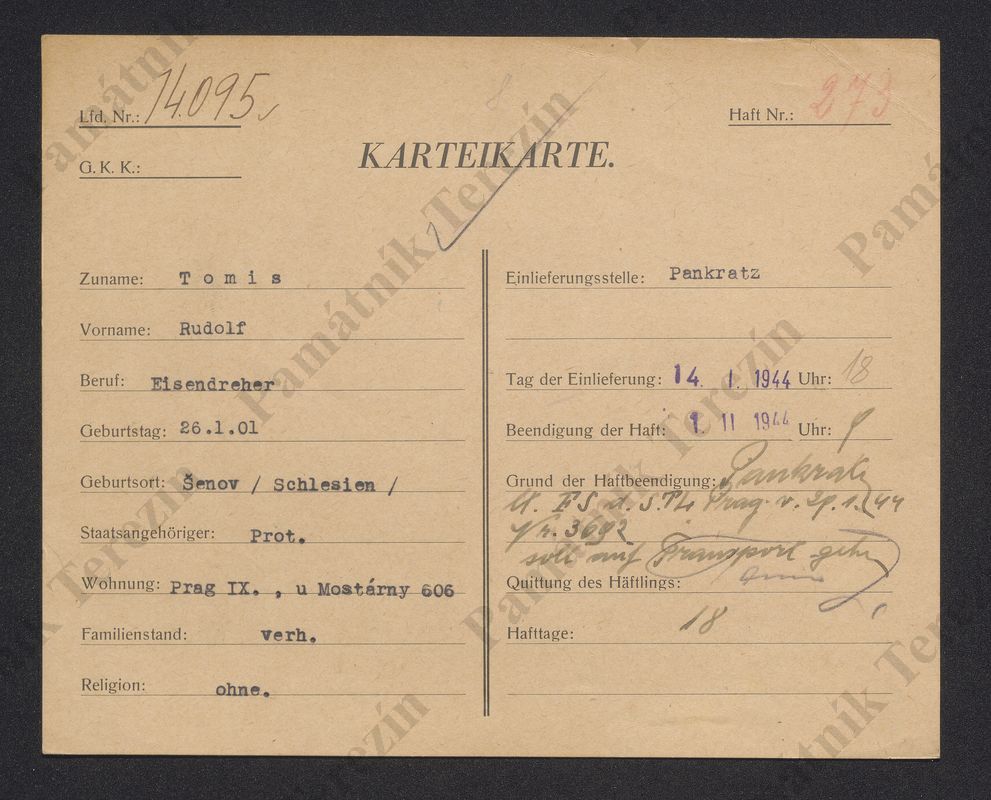 Lfd. Nr.: 14.095.
Haft Nr.: 273
G. K. K.:
KARTEIKARTE.
Zuname: Tomis
Vorname: Rudolf
Beruf: Eisendreher
Geburtstag: 26.1.01
Geburtsort: Šenov / Schlesien /
Staatsangehöriger: Prot.
Wohnung: Prag IX. , u Mostárny 606
Familienstand: verh.
Religion: ohne.
Einlieferungsstelle: Pankratz
Tag der Einlieferung: 14. I. 1944 Uhr: 18
Beendigung der Haft: 1. II 1944 Uhr: 9
Grund der Haftbeendigung: Pankratz
lt. FS d. S.Pl. Prag v. 29.1.44
Nr. 3692
soll auf Transport gehen
Quittung des Häftlings:
Hafttage: 18
Památník Terezín
Památník Terezín
Památník Terezín
Památník Terezín